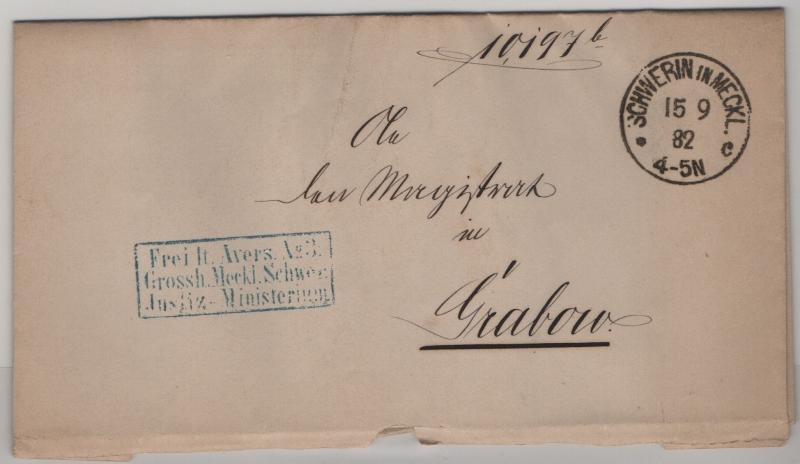 10,197b
SCHWERIN IN MECKL.
15 9
82
4-5N
c
An
den Magistrat
in
Grabow.
Frei lt. Avers. No 3.
Grossh. Meckl. Schwer.
Justiz-Ministerium